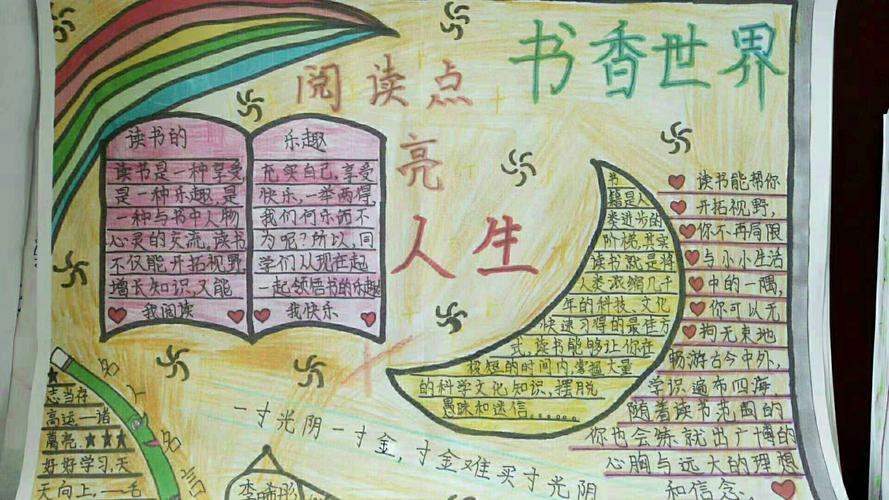 书香世界
阅读点
亮
人生
读书的
读书是一种享受
是一种乐趣,是
一种与书中人物
心灵的交流,读书
不仅能开拓视野
增长知识,又能
我阅读
乐趣
充实自己,享受
快乐,一举两得,
我们何乐而不
为呢?所以,同
学们从现在起
一起领悟书的乐趣
我快乐
书
籍是人
类进步的
阶梯,其实
读书就是将
人类浓缩几千
年的科技、文化
快速习得的最佳方
式,读书能够让你在
极短的时间内掌握大量
的科学文化知识,摆脱
愚昧和迷信……
读书能帮你
开拓视野,
你不再局限
与小小生活
中的一隅,
你可以无
拘无束地
畅游古今中外,
学识遍布四海,
随着读书范围的
你也会练就出广博的
心胸与远大的理想
和信念。
志当存
高远—诸
葛亮.
好好学习,天
天向上,—毛
名
名
言
一寸光阴一寸金,寸金难买寸光阴